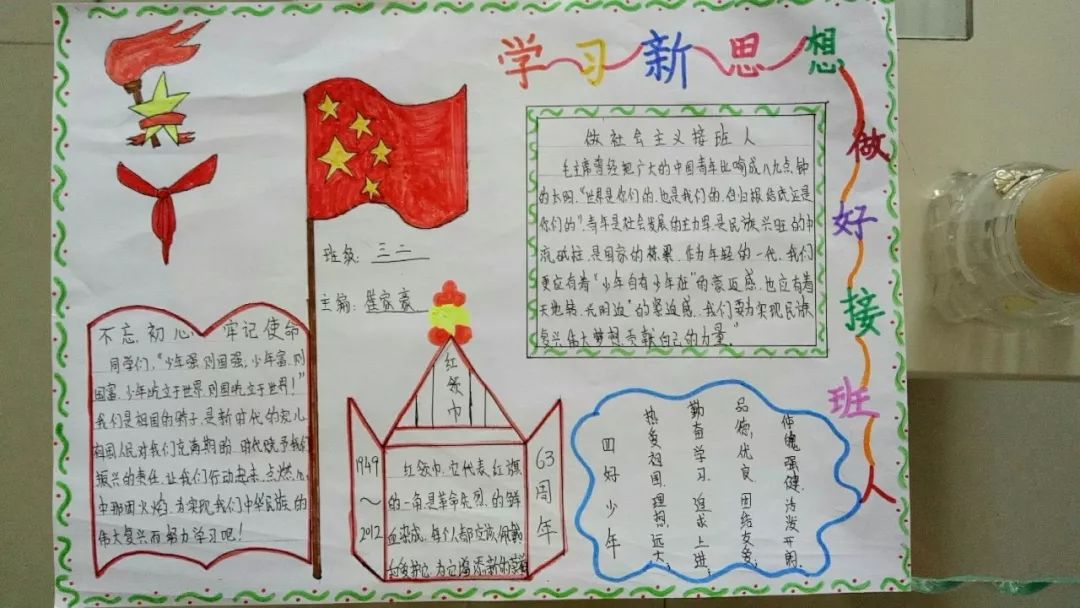 学习新思想
做好接班人
做社会主义接班人
毛主席曾经把广大的中国青年比喻成八九点钟
的太阳。"世界是你们的,也是我们的,但归根结底还是
你们的"。青年是社会发展的主力军,是民族兴旺的中
流砥柱,是国家的栋梁。作为年轻的一代,我们
更应有着"少年自有少年狂"的豪迈感,也应有着
天地转,光阴迫"的紧迫感。我们要为实现民族
复兴伟大梦想贡献自己的力量。"
班级:三二
主编:崔家豪
不忘初心 牢记使命
同学们,"少年强则国强,少年富则
国富,少年屹立于世界,则国屹立于世界!"
我们是祖国的骄子,是新时代的宠儿
祖国人民对我们充满期盼,时代赋予我们
振兴的责任,让我们行动起来,点燃心
中那团火焰,为实现我们中华民族的
伟大复兴而努力学习吧!
红领巾
1949
~
2012
红领巾,它代表红旗
的一角是革命先烈的鲜
血染成,每个人都应该佩戴
和爱护它,为它增添新的荣誉
63周年
四好少年
热爱祖国,理想远大;
勤奋学习,追求上进;
品德优良,团结友爱;
体魄强健,活泼开朗。